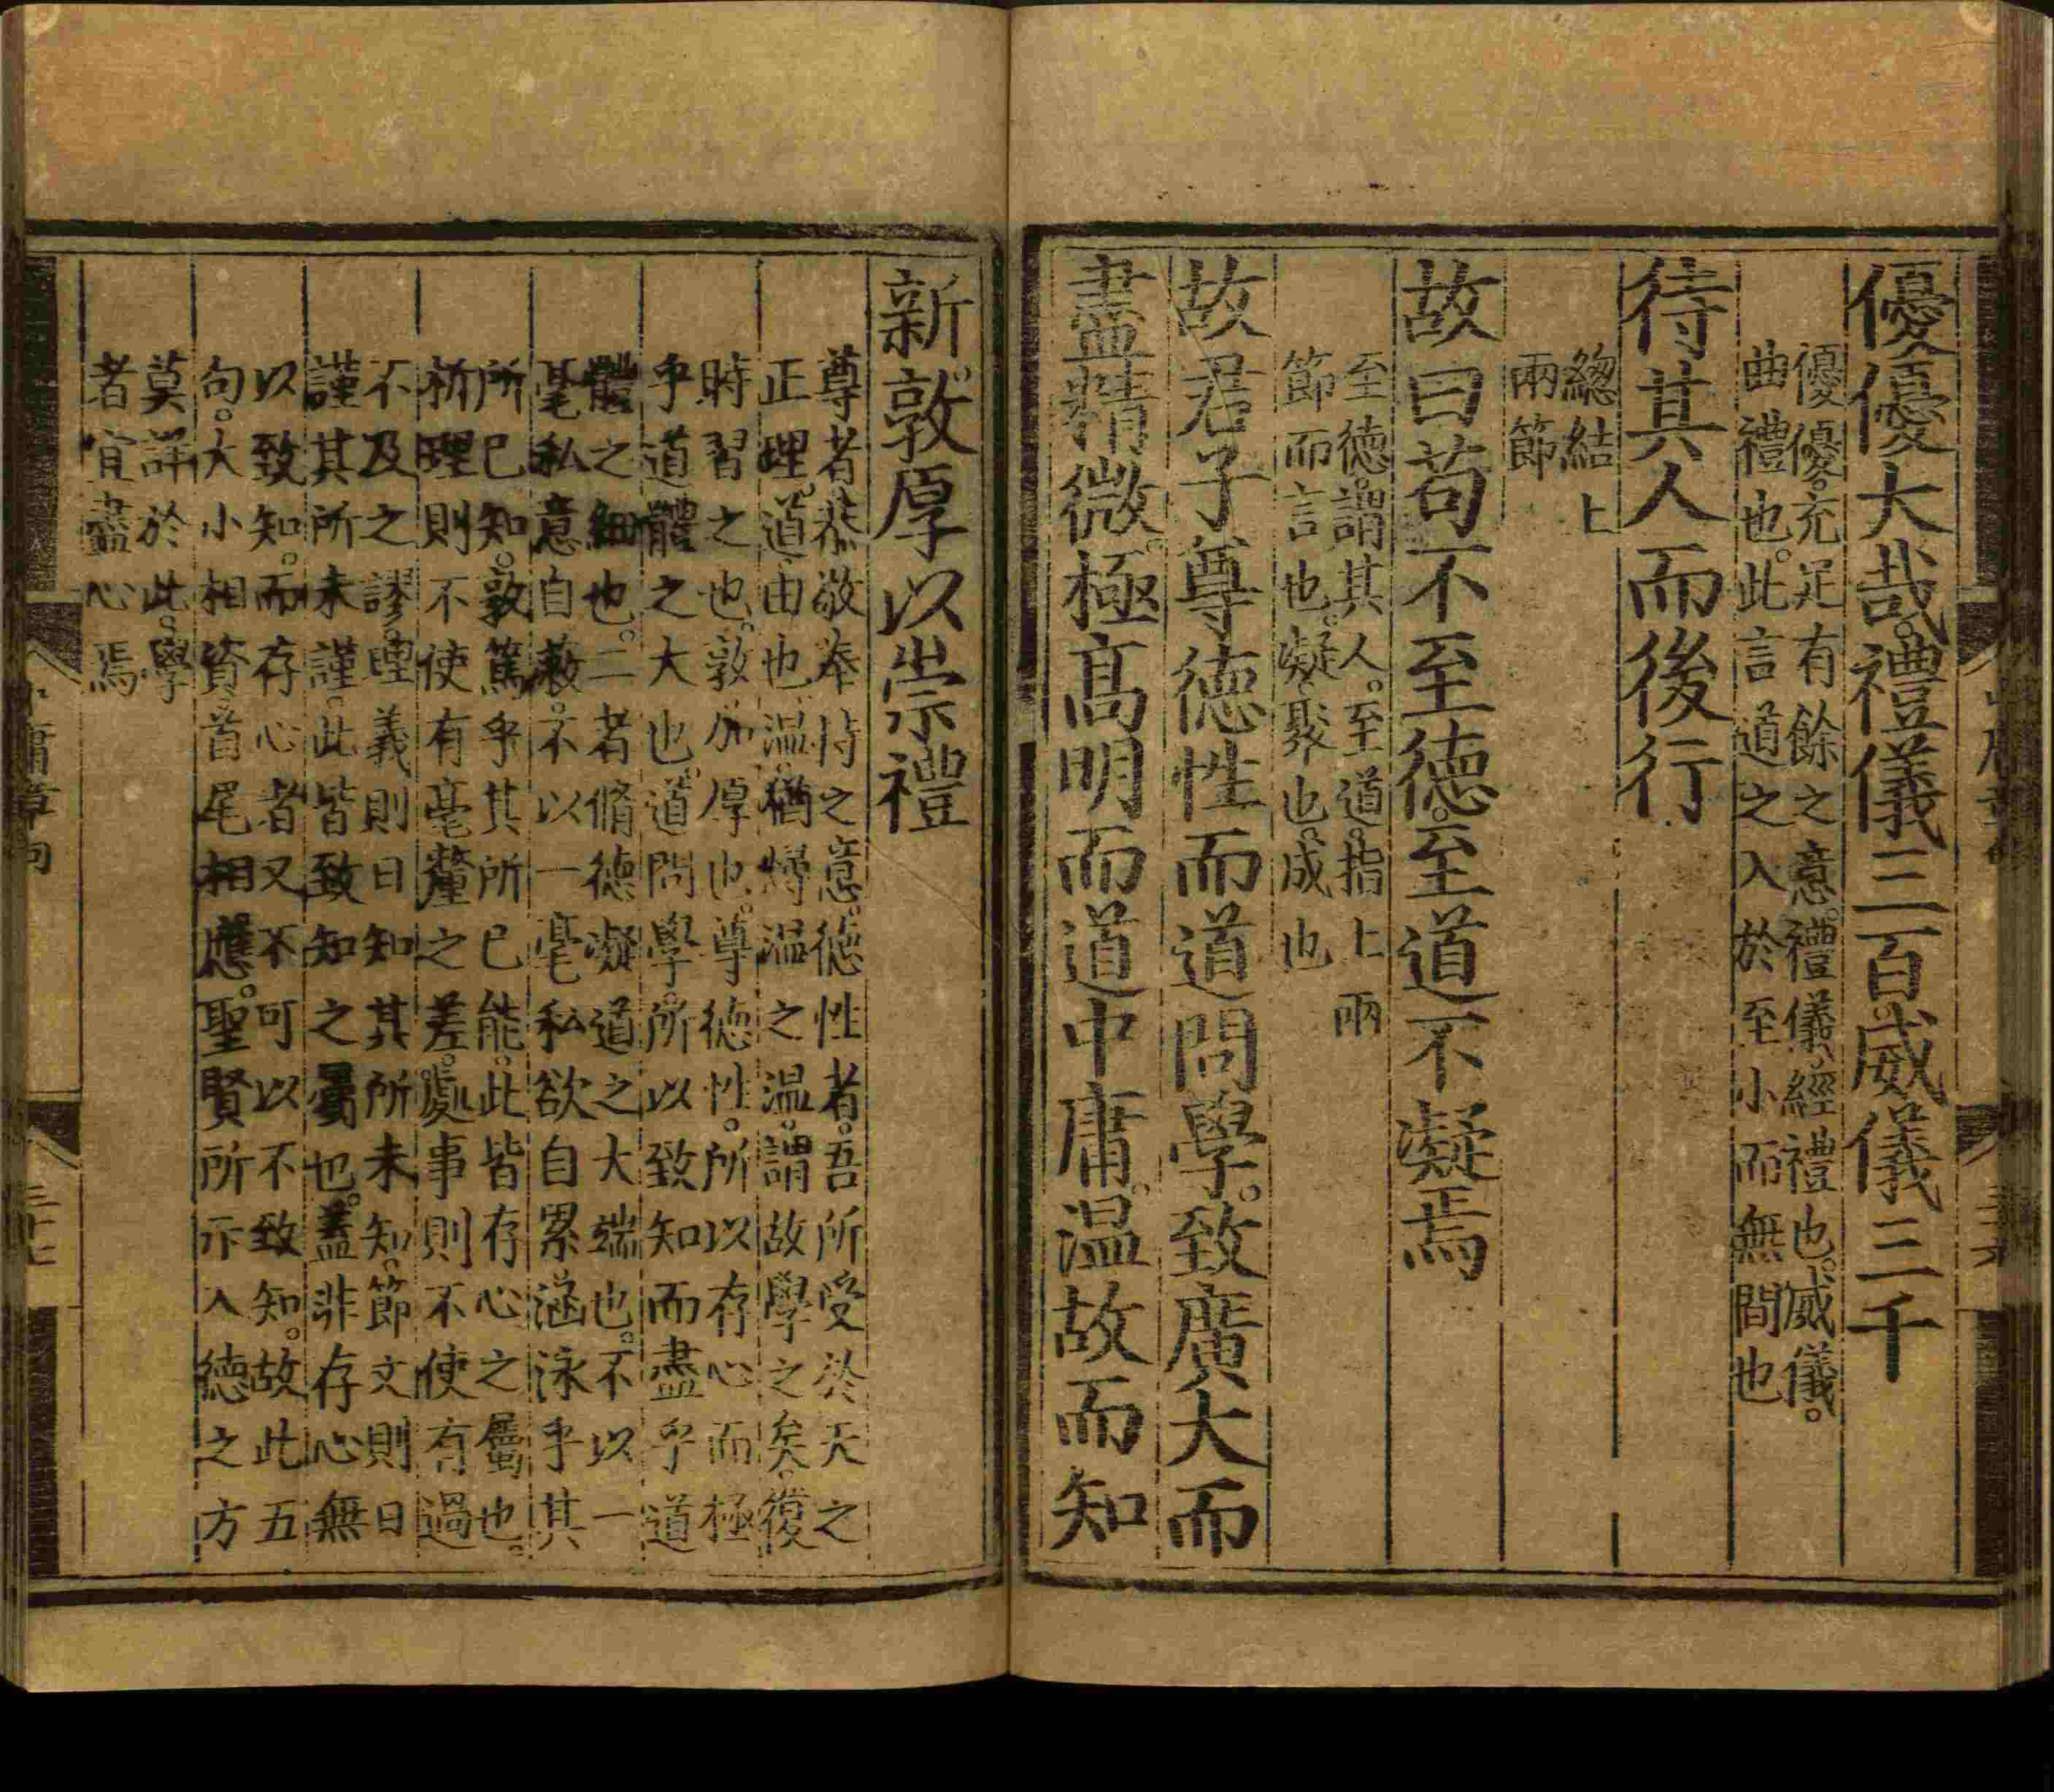 優優大哉禮儀三百威儀三千
優優充足有餘之意禮儀經禮也威儀
曲禮也此言道之入於至小而無間也
待其人而後行
緫結上
兩節
故曰苟不至德至道不凝焉
至德謂其人至道指上兩
節而言也凝聚也成也
故君子尊德性而道問學致廣大而
盡精微極髙明而道中庸温故而知
新敦厚以崇禮
尊者恭敬奉持之意德性者吾所受於天之
正理道由也温猶燖温之温謂故學之矣復
時習之也敦加厚也尊德性所以存心而極
乎道體之大也道問學所以致知而盡乎道
體之細也二者脩德凝道之大端也不以一
毫私意自蔽不以一毫私欲自累涵泳乎其
所已知敦篤乎其所已能此皆存心之屬也
析理則不使有毫釐之差處事則不使有過
不及之謬理義則日知其所未知節文則日
謹其所未謹此皆致知之屬也蓋非存心無
以致知而存心者又不可以不致知故此五
句大小相資首尾相應聖賢所示入德之方
莫詳於此學
者宜盡心焉
中庸章句
三十七